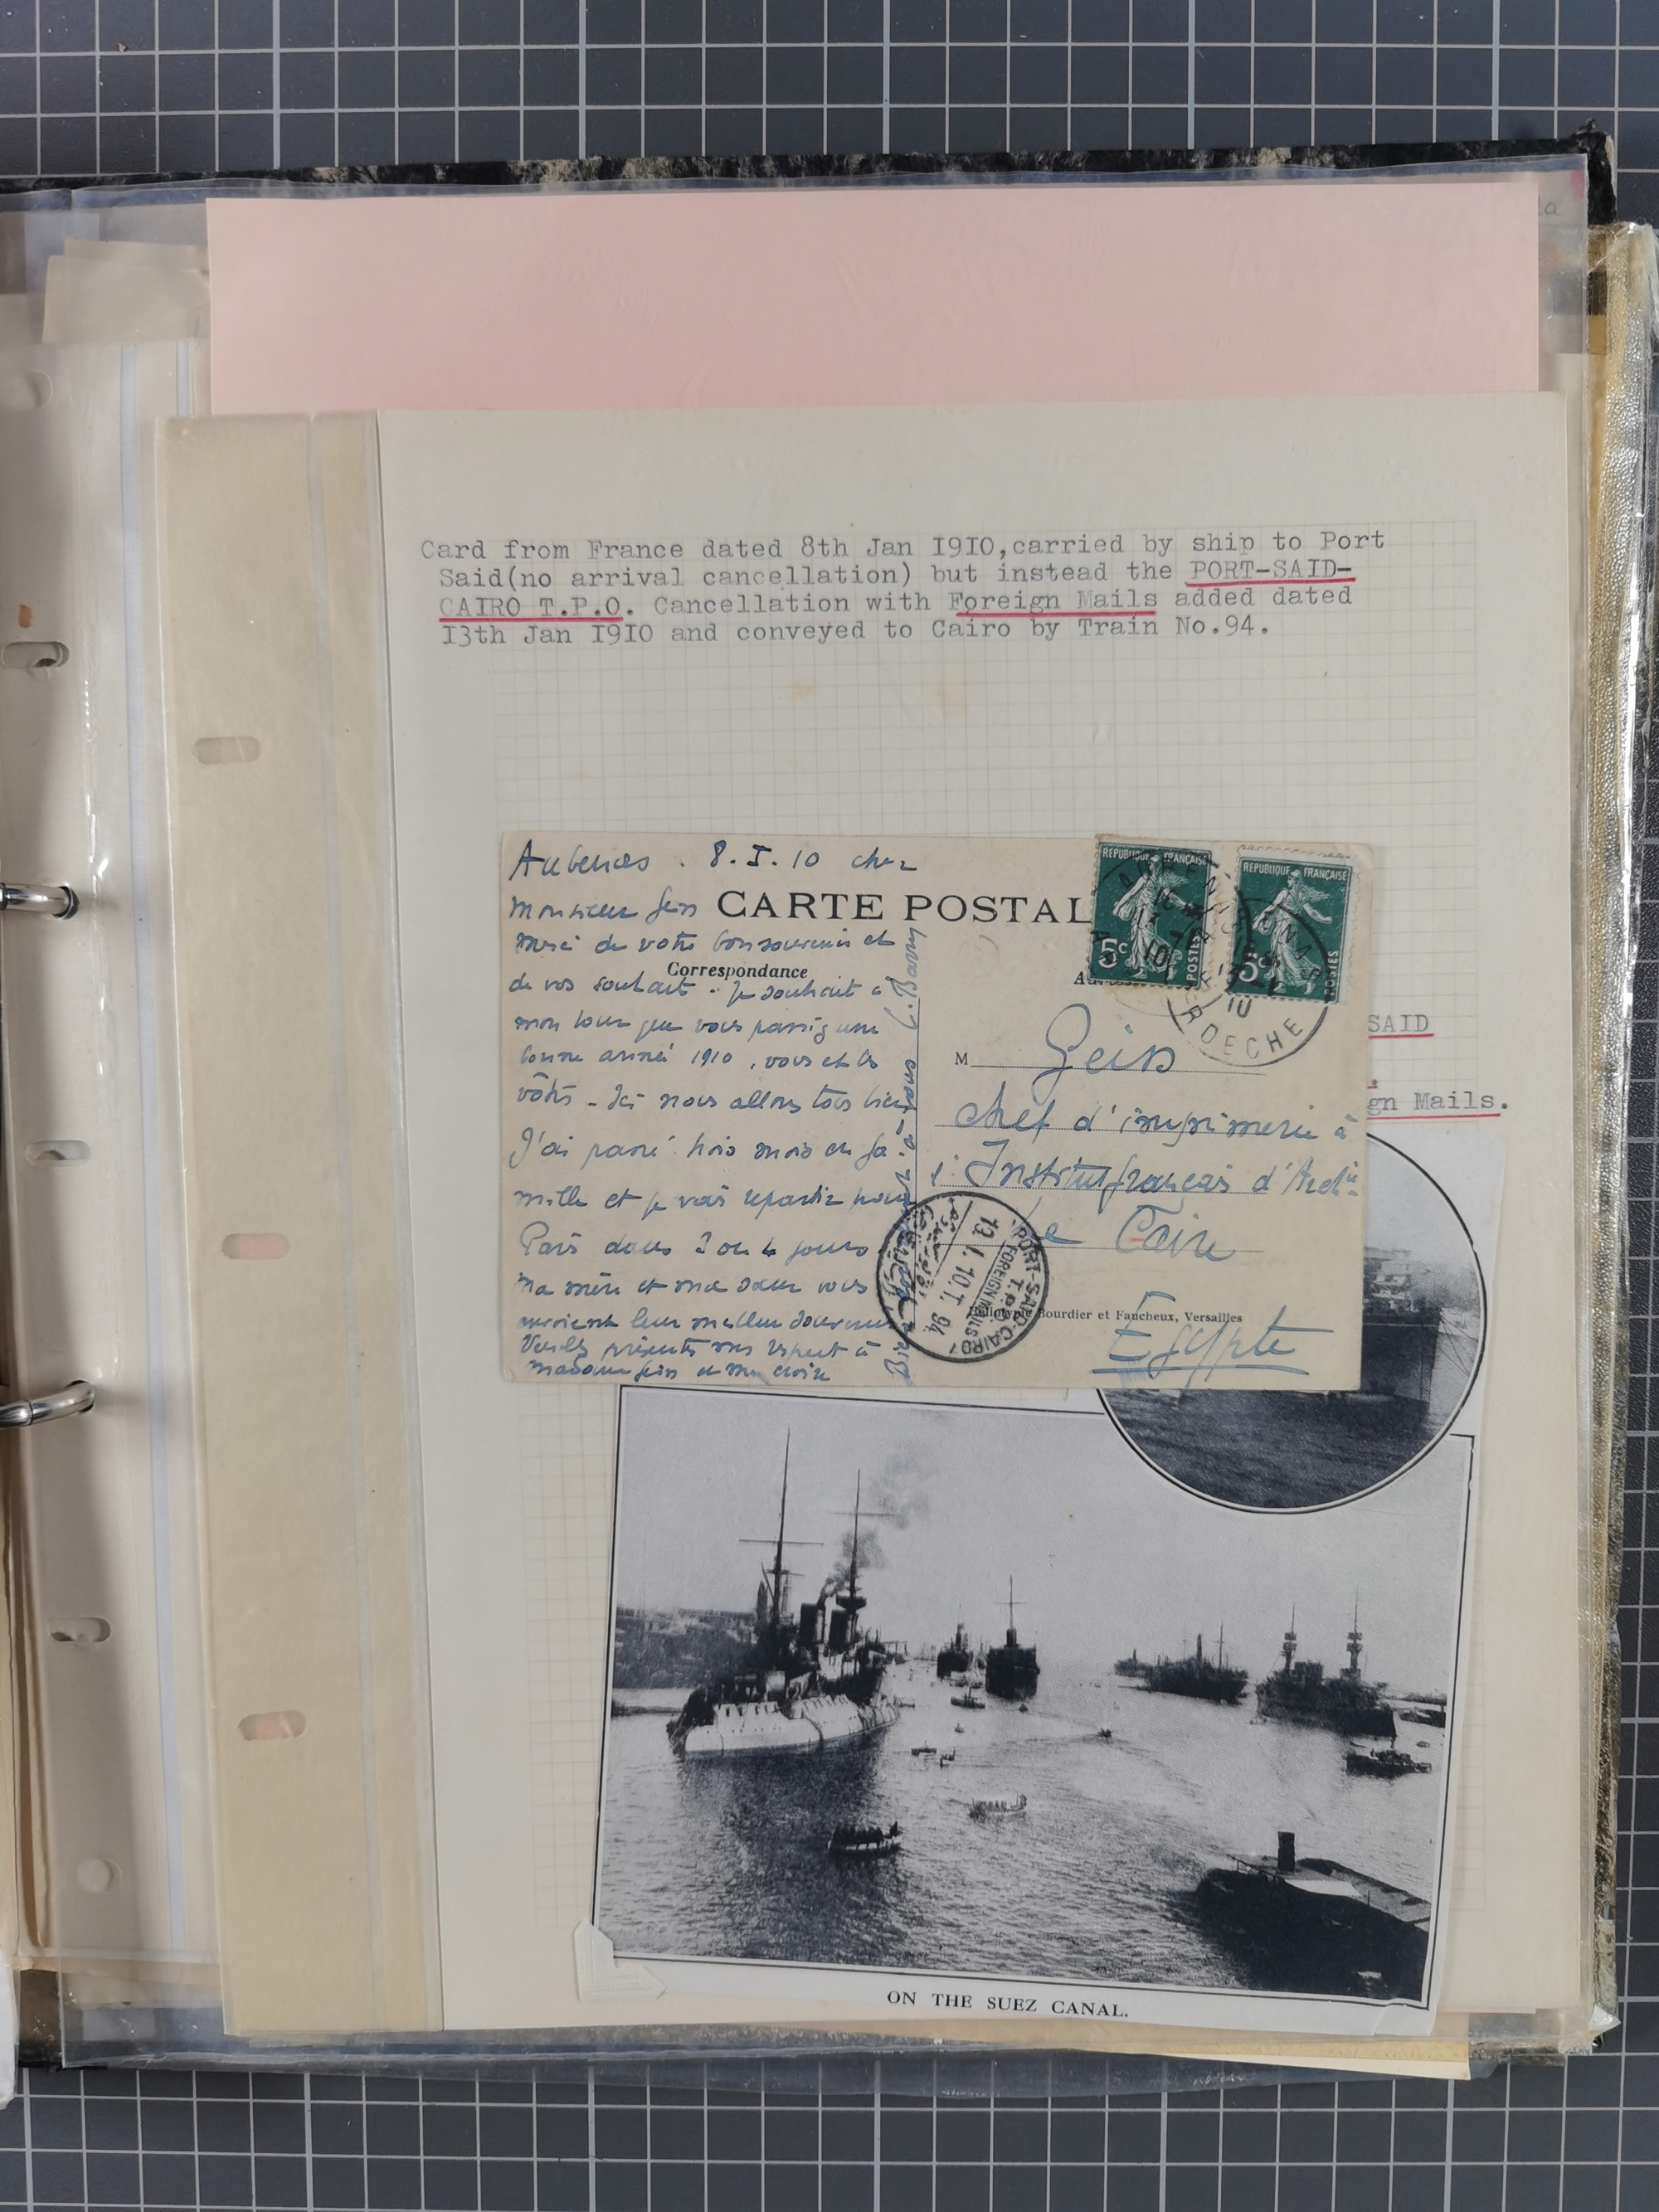 Card from France dated 8th Jan 1910,carried by ship to Port
Said(no arrival cancellation) but instead the PORT-SAID-
CAIRO T.P.O. Cancellation with Foreign Mails added dated
13th Jan 1910 and conveyed to Cairo by Train No.94.
Aubenas . 8.I.10 cher
Monsieur Geiss
CARTE POSTAL
merci de votre bon souvenir et
Correspondance
de vos souhait . Je souhait à
mon tour que vous passiez une
bonne année 1910 , vous et les
vôtres - Ici nous allons tous bien
J'ai passé trois mois en fa-
mille et je vais repartir pour
Paris dans 3 ou 4 jours
Ma mère et ma soeur vous
envoient leur meilleur souvenir
Veuillez présenter mes respect à
madame Geiss et me croire
à vous
REPUBLIQUE FRANÇAISE
5c
POSTES
REPUBLIQUE FRANÇAISE
5c
POSTES
10
ARDECHE
M
Geiss
chef d'imprimerie à
l'Institut français d'Arch
Le Caire
Egypte
Bourdier et Faucheux, Versailles
PORT-SAID-CAIRO
T.P.O.
FOREIGN MAILS
13.I.10.T.94
SAID
gn Mails.
ON THE SUEZ CANAL.